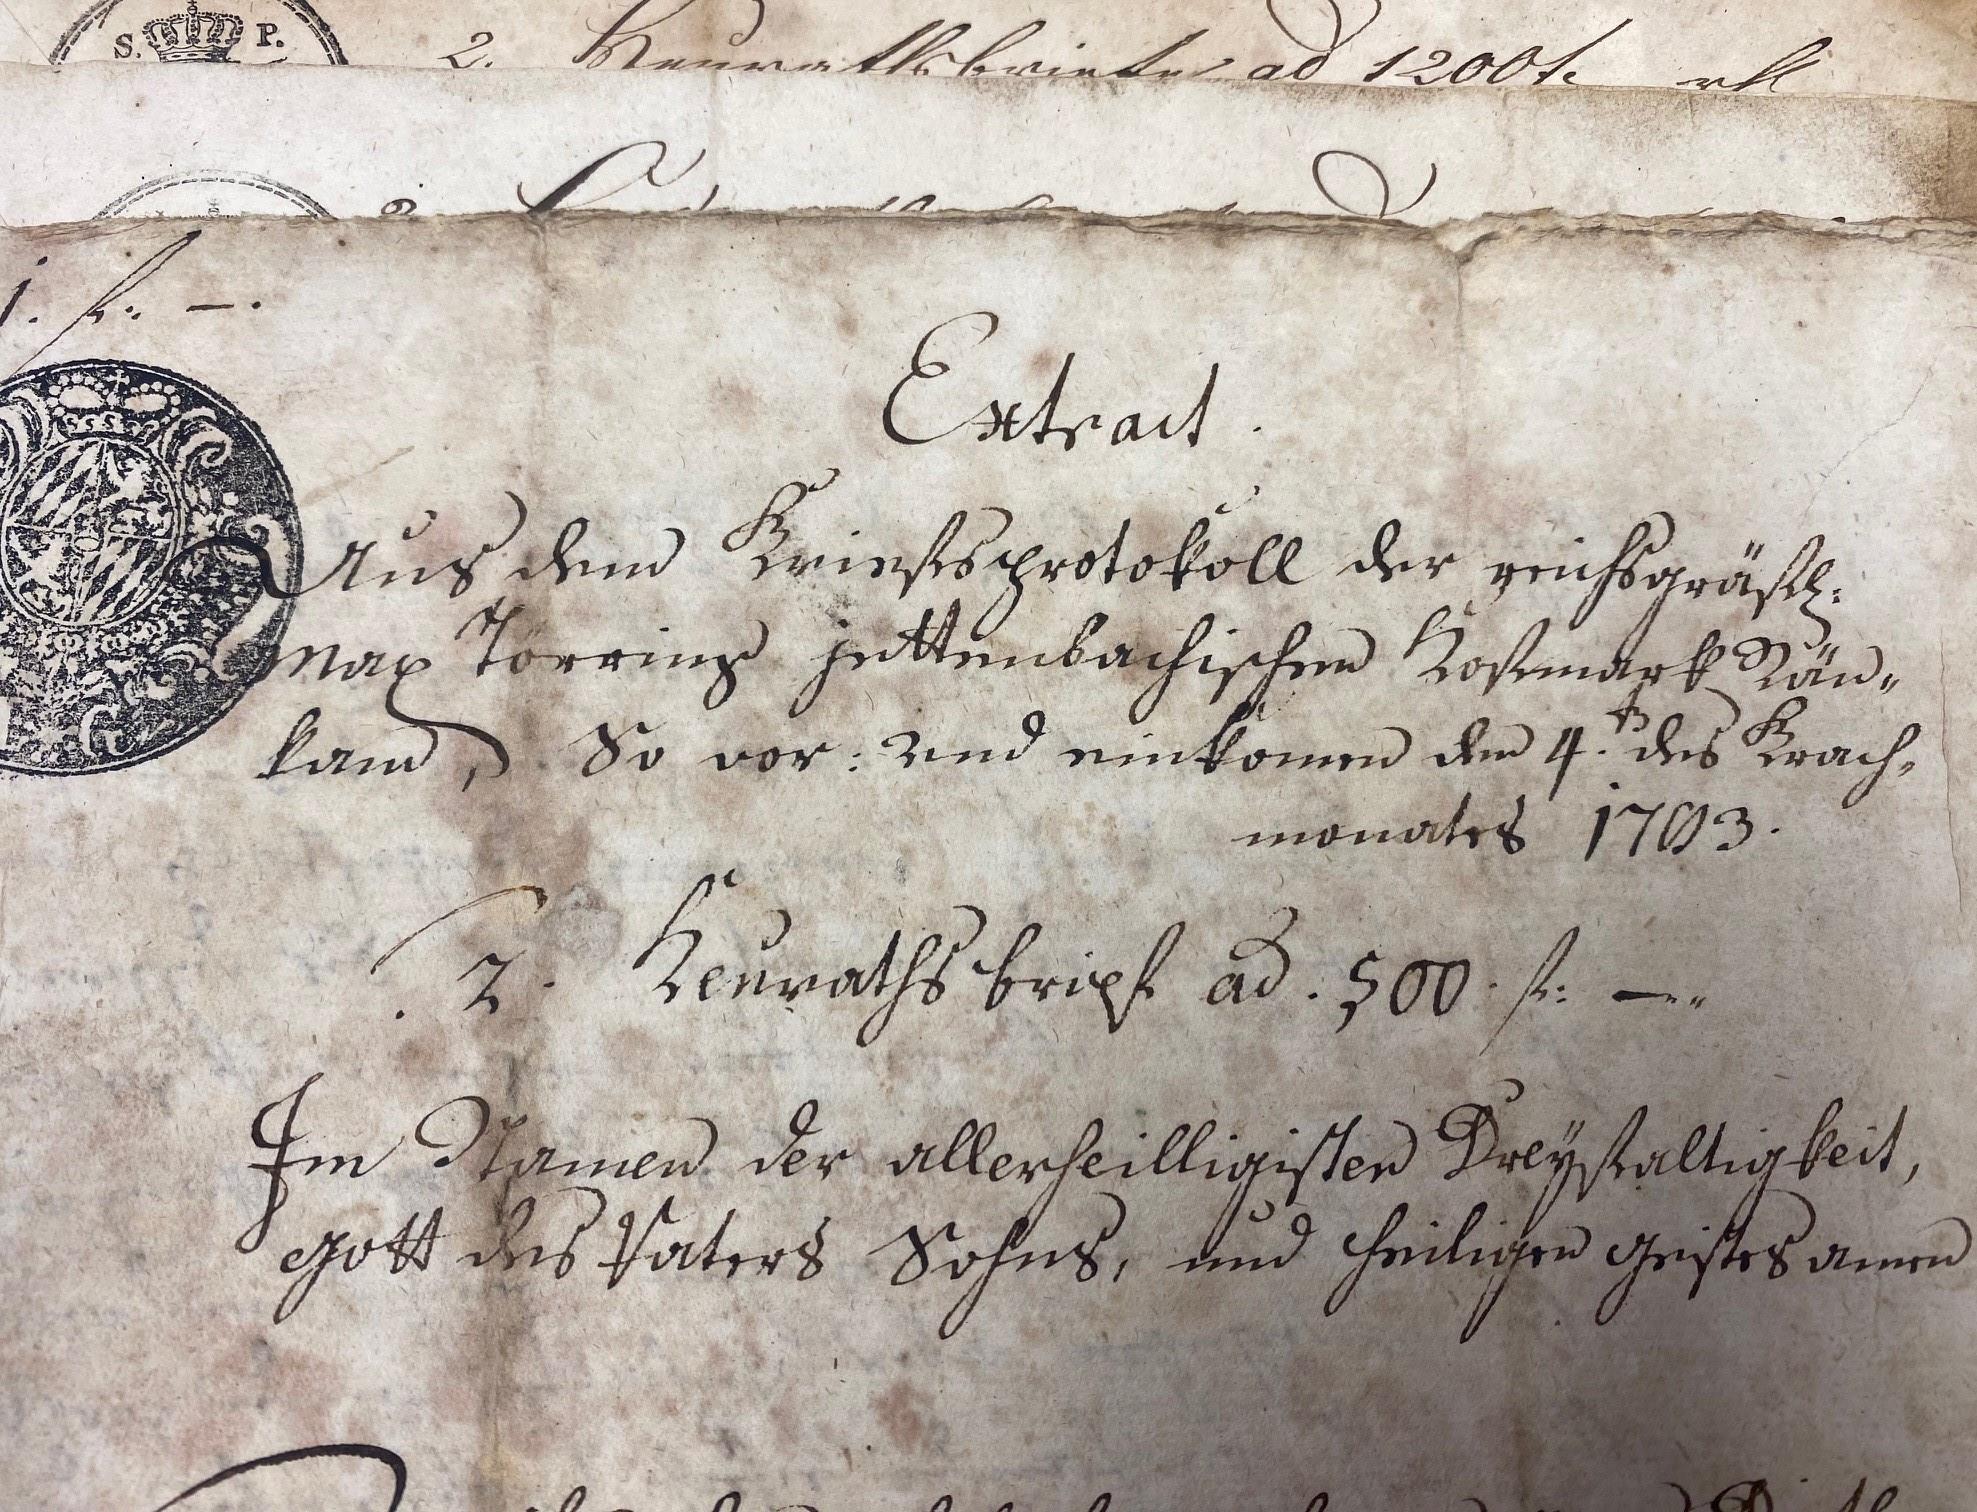 S. P.
2. Heurathsbriefe ad 1200 f.
1. f: —.
Extract.
Aus dem Briefsprotokoll der reichsgräfl:
Max Törring jettenbachischen Hofmark Rän-
kam, So vor: und einkomen den 4.ten des Brach-
monates 1793.
2. Heurathsbrief ad. 500. f: —..
Im Namen der allerheilligisten Dreyfaltigkeit,
Gott des Vaters Sohns, und heiligen Geistes amen